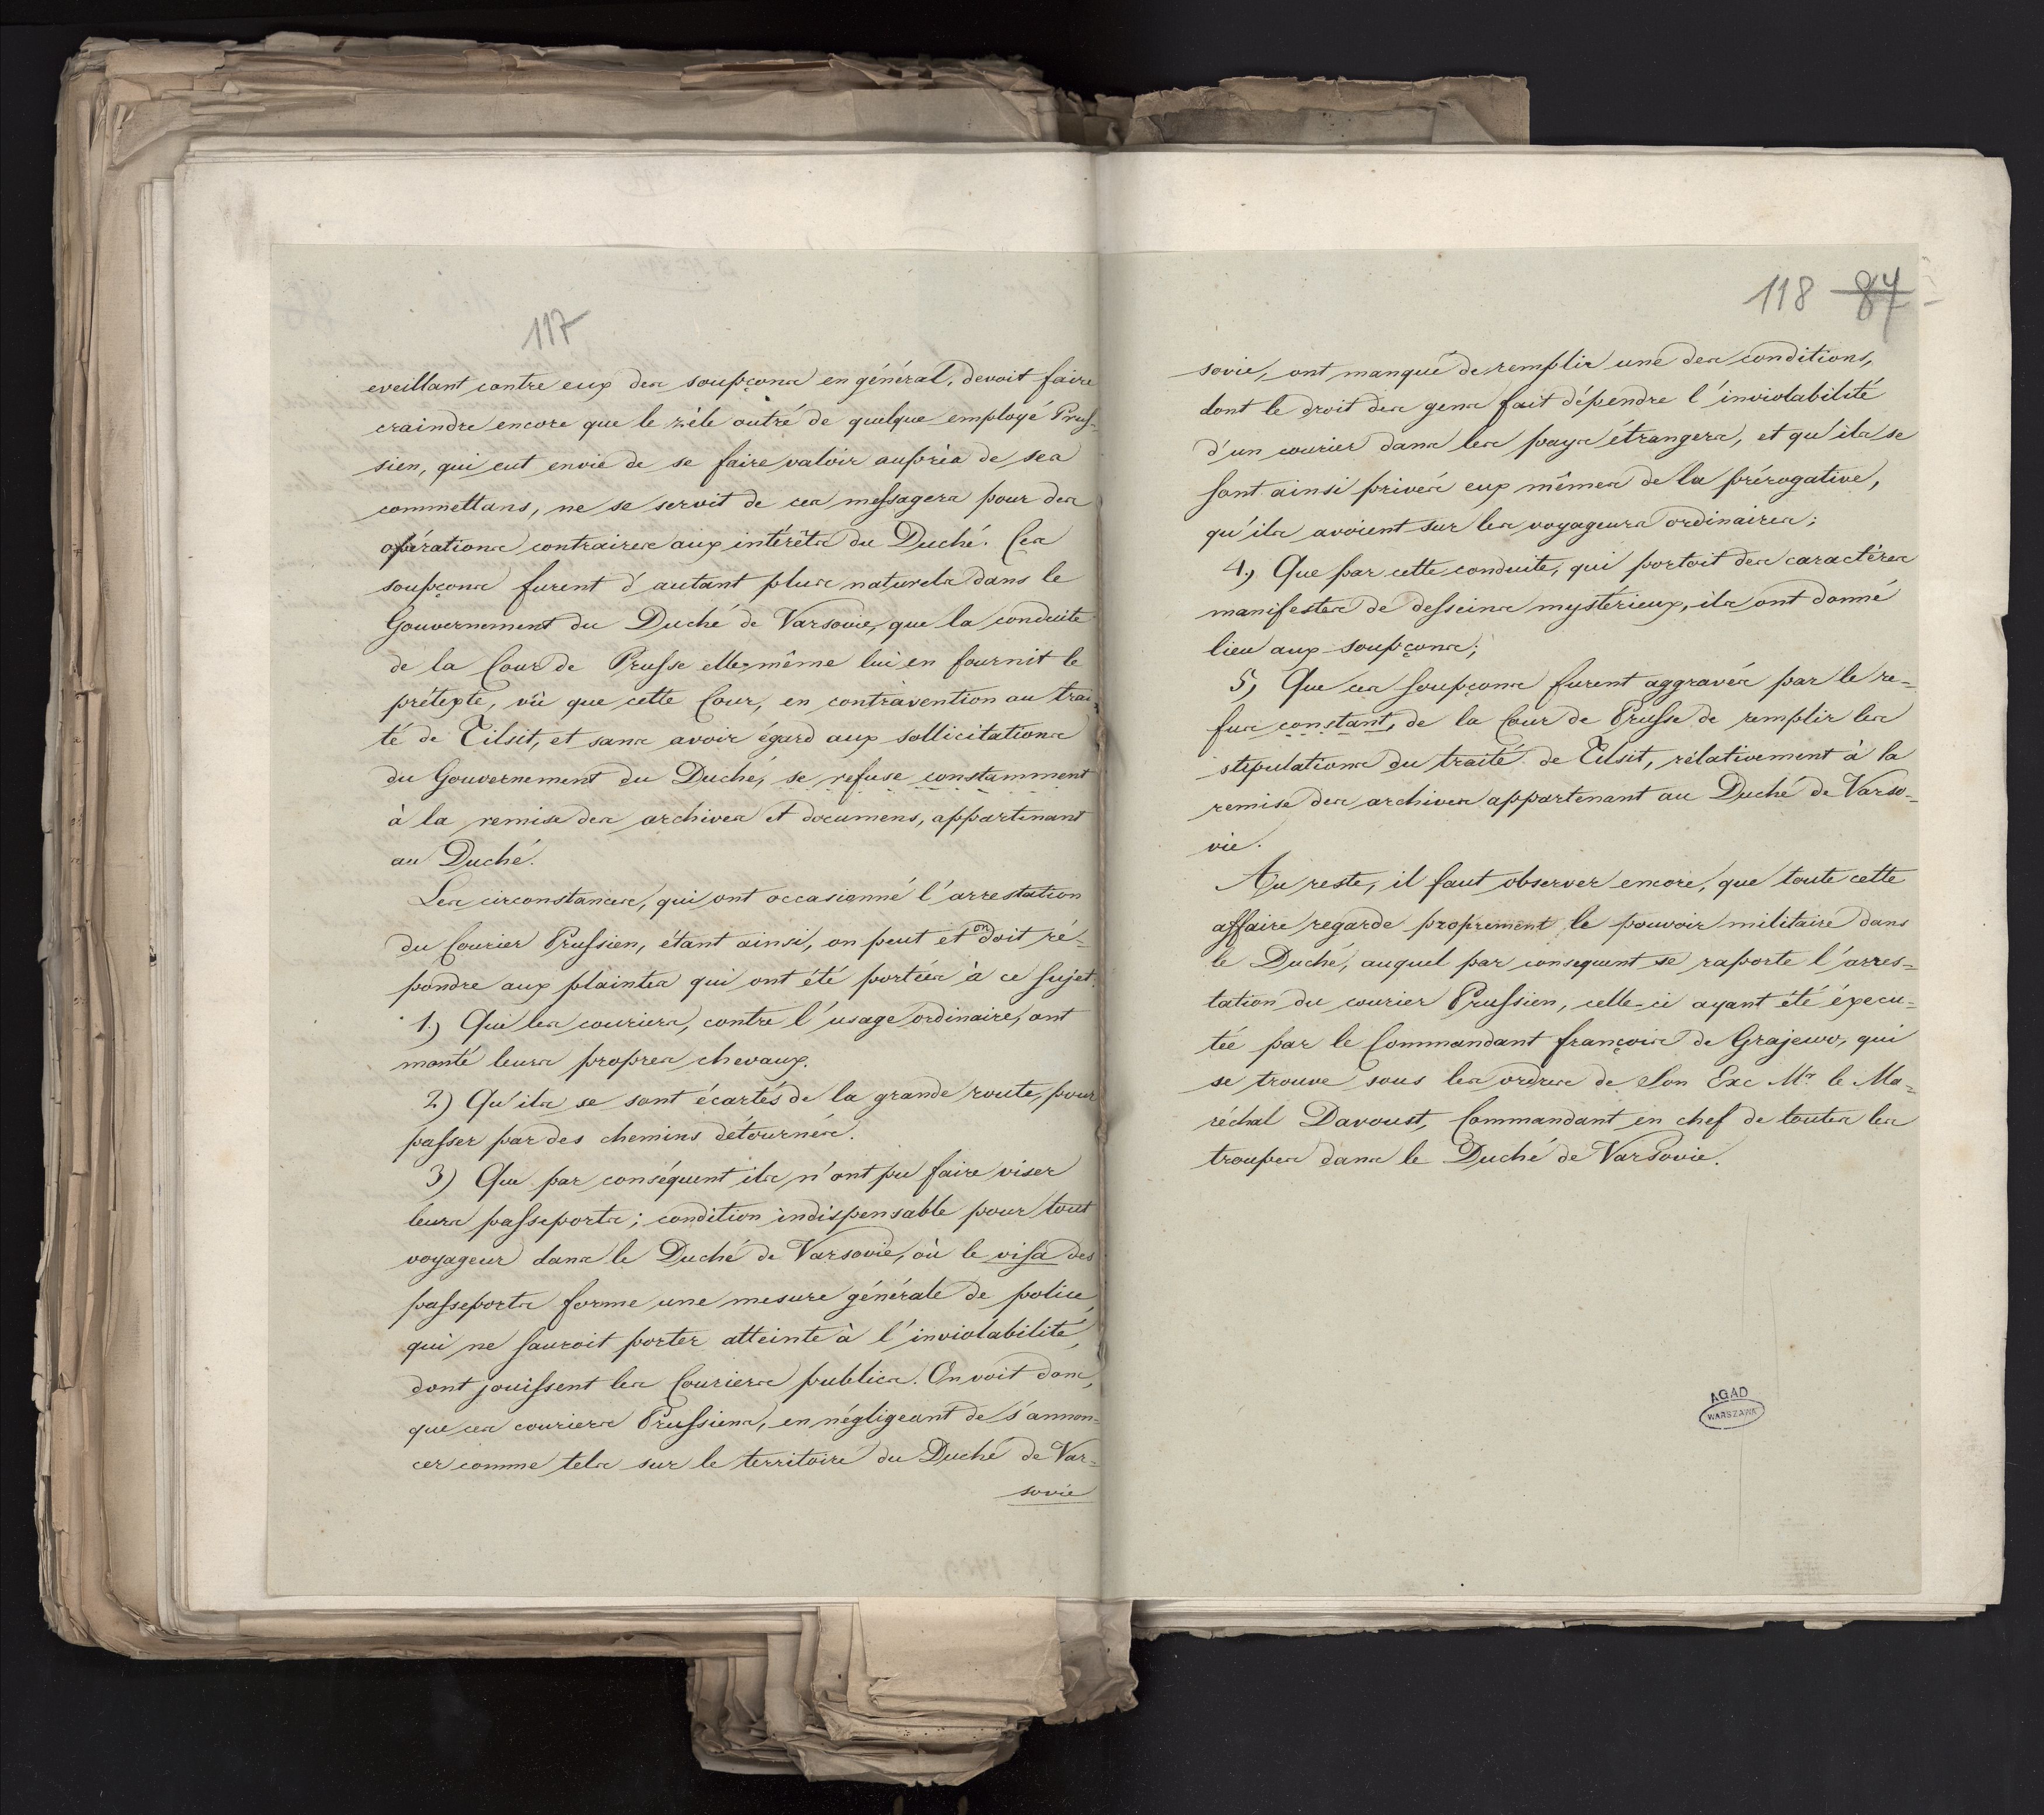 117
eveillant contre eux des soupçons en général, devoit faire
craindre encore que le zèle outré de quelque employé Prus-
sien, qui eut envie de se faire valoir auprès de ses
commettans, ne se servit de ces messagers pour des
opérations contraires aux intérêts du Duché. Ces
soupçons furent d'autant plus naturels dans le
Gouvernement du Duché de Varsovie, que la conduite
de la Cour de Prusse elle-même lui en fournit le
prétexte, vû que cette Cour, en contravention au trai-
té de Tilsit, et sans avoir égard aux sollicitations
du Gouvernement du Duché, se refuse constamment
à la remise des archives et documens, appartenant
au Duché.
Les circonstances, qui ont occasionné l'arrestation
du Courier Prussien, étant ainsi, on peut et on doit ré-
pondre aux plaintes qui ont été portées à ce sujet:
1.) Que les couriers, contre l'usage ordinaire, ont
monté leurs propres chevaux.
2.) Qu'ils se sont écartés de la grande route, pour
passer par des chemins détournés.
3) Que par conséquent ils n'ont pu faire viser
leurs passeports; condition indispensable pour tout
voyageur dans le Duché de Varsovie, où le visa des
passeports forme une mesure générale de police,
qui ne sauroit porter atteinte à l'inviolabilité,
dont jouissent les Couriers publics. On voit donc,
que ces couriers Prussiens, en négligeant de s'annon-
cer comme tels sur le territoire du Duché de Var-
sovie
118 84
sovie, ont manqué de remplir une des conditions,
dont le droit des gens fait dépendre l'inviolabilité
d'un courier dans les pays étrangers, et qu'ils se
sont ainsi privés eux mêmes de la prérogative,
qu'ils avoient sur les voyageurs ordinaires;
4.) Que par cette conduite, qui portoit des caractères
manifestes de desseins mystérieux, ils ont donné
lieu aux soupçons;
5) Que ces soupçons furent aggravés par le re-
fus constant, de la Cour de Prusse de remplir les
stipulations du traité de Tilsit, rélativement à la
remise des archives appartenant au Duché de Varso-
vie.
Au reste, il faut observer encore, que toute cette
affaire regarde proprement le pouvoir militaire dans
le Duché, auquel par consequent se raporte l'arres-
tation du courier Prussien, celle-ci ayant été éxecu-
tée par le Commandant françois de Grajewo, qui
se trouve sous les ordres de Son Exc Mr. le Ma-
réchal Davoust, Commandant en chef de toutes les
troupes dans le Duché de Varsovie.
AGAD
WARSZAWA